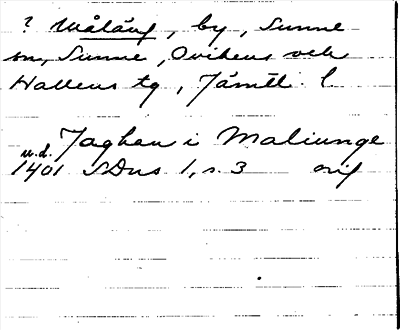 ? Målång, by, Sunne
sn, Sunne, Ovikens och
Hallens tg, Jämtl. l.
Jaghen i Maliunge
u.d.
1401 SDns 1, s. 3 orig